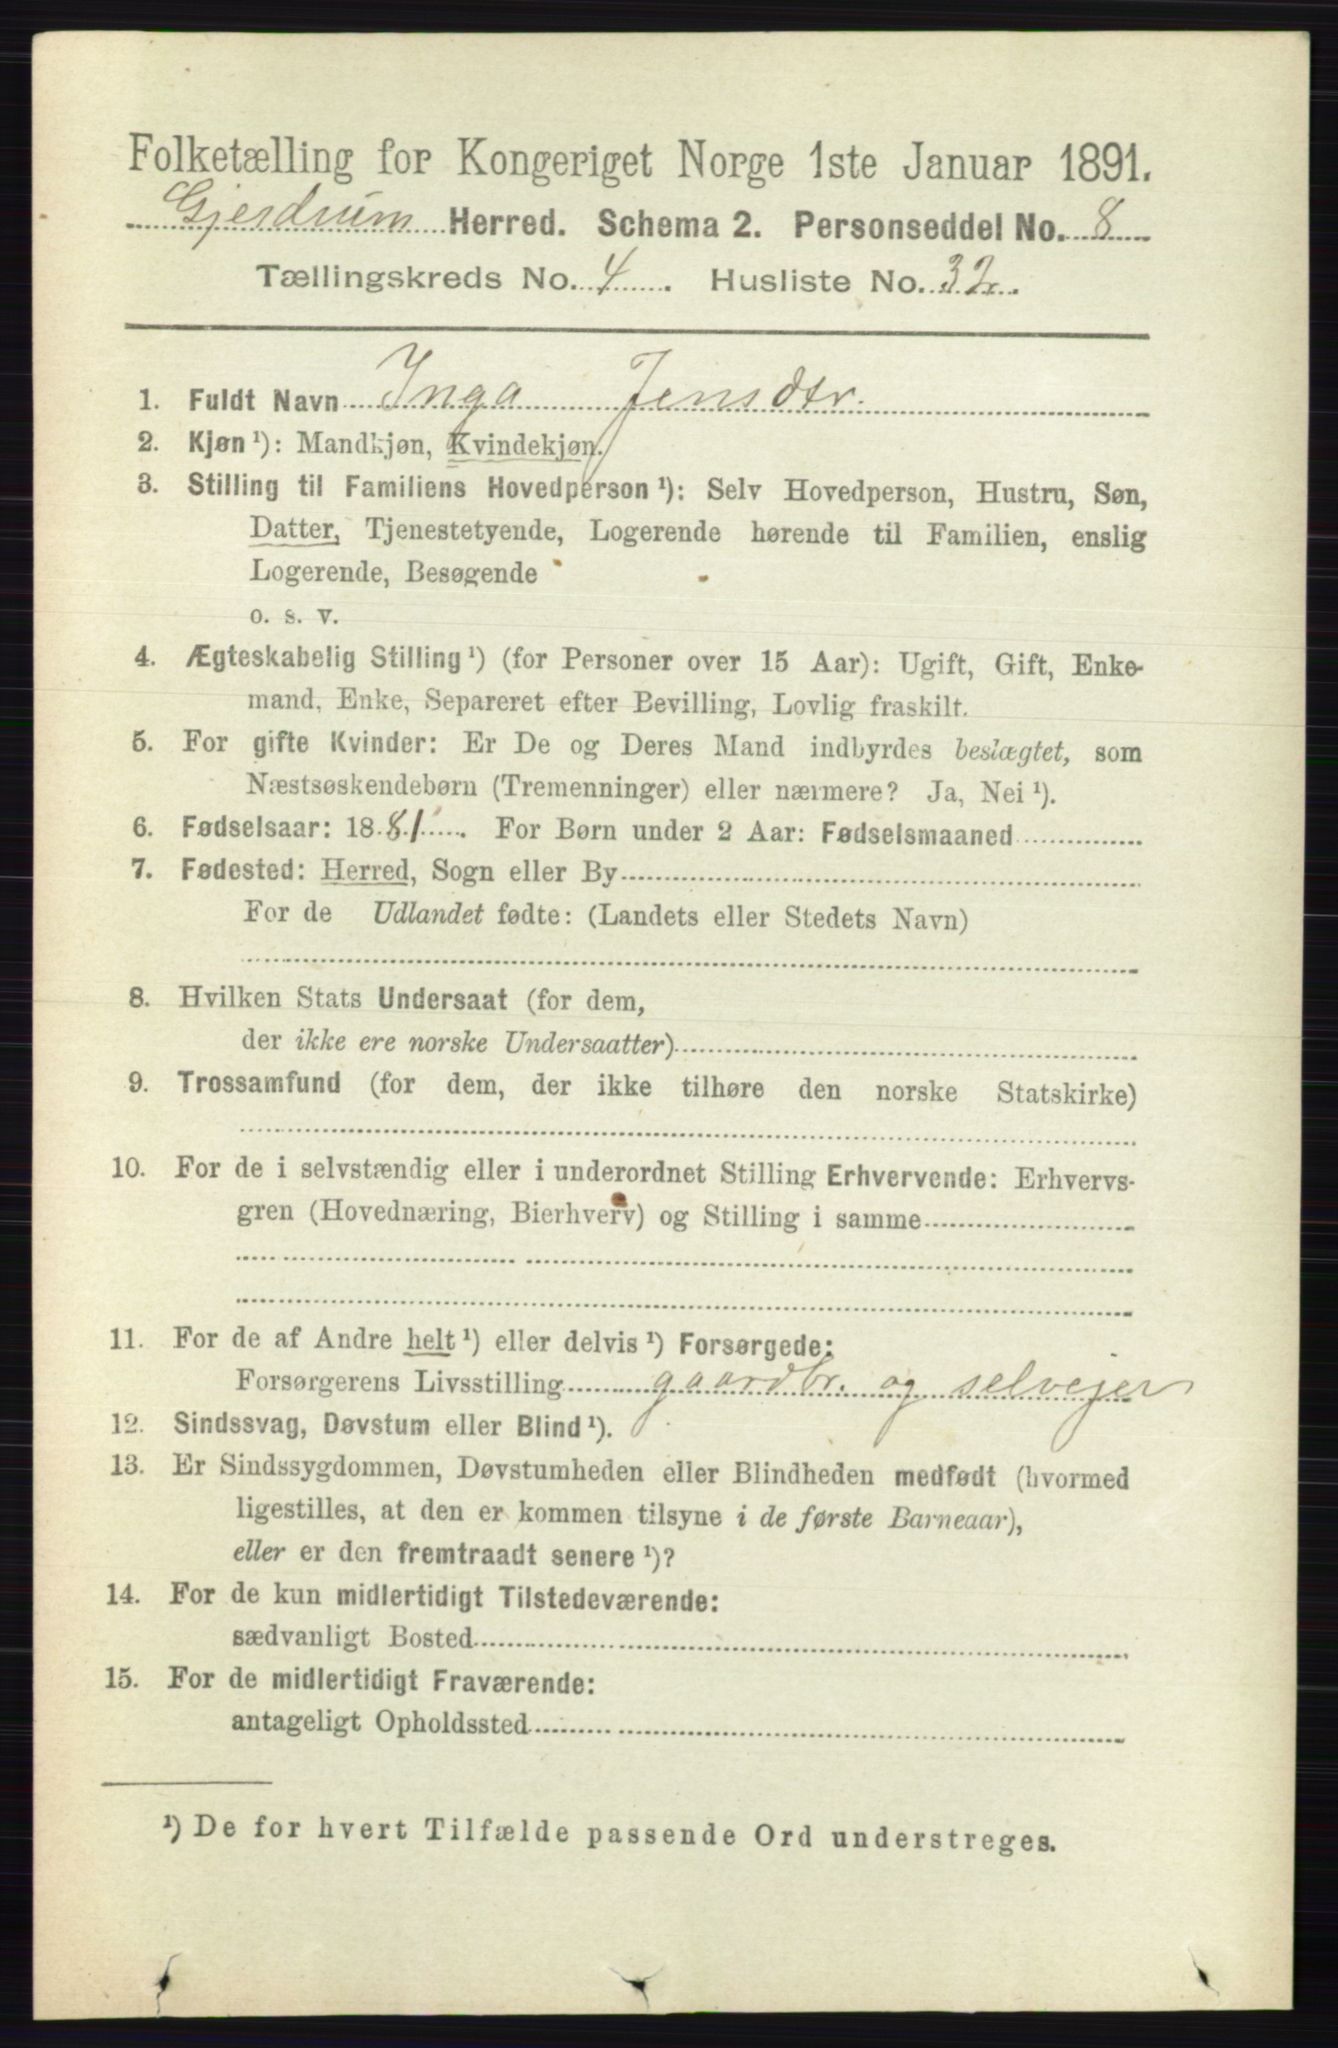 Folketælling for Kongeriget Norge 1ste Januar 1891.
Gjerdrum Herred. Schema 2. Personseddel No. 8
Tællingskreds No. 4. Husliste No. 32.
1. Fuldt Navn Inga Jensdtr.
2. Kjøn¹): Mandkjøn, Kvindekjøn.
3. Stilling til Familiens Hovedperson¹): Selv Hovedperson, Hustru, Søn,
Datter, Tjenestetyende, Logerende hørende til Familien, enslig
Logerende, Besøgende
o. s. v.
4. Ægteskabelig Stilling¹) (for Personer over 15 Aar): Ugift, Gift, Enke-
mand, Enke, Separeret efter Bevilling, Lovlig fraskilt.
5. For gifte Kvinder: Er De og Deres Mand indbyrdes beslægtet, som
Næstsøskendebørn (Tremenninger) eller nærmere? Ja, Nei¹).
6. Fødselsaar: 1881. For Børn under 2 Aar: Fødselsmaaned
7. Fødested: Herred, Sogn eller By
For de Udlandet fødte: (Landets eller Stedets Navn)
8. Hvilken Stats Undersaat (for dem,
der ikke ere norske Undersaatter)
9. Trossamfund (for dem, der ikke tilhøre den norske Statskirke)
10. For de i selvstændig eller i underordnet Stilling Erhvervende: Erhvervs-
gren (Hovednæring, Bierhverv) og Stilling i samme
11. For de af Andre helt¹) eller delvis¹) Forsørgede:
Forsørgerens Livsstilling gaardbr. og selvejer
12. Sindssvag, Døvstum eller Blind¹).
13. Er Sindssygdommen, Døvstumheden eller Blindheden medfødt (hvormed
ligestilles, at den er kommen tilsyne i de første Barneaar),
eller er den fremtraadt senere¹)?
14. For de kun midlertidigt Tilstedeværende:
sædvanligt Bosted
15. For de midlertidigt Fraværende:
antageligt Opholdssted
¹) De for hvert Tilfælde passende Ord understreges.